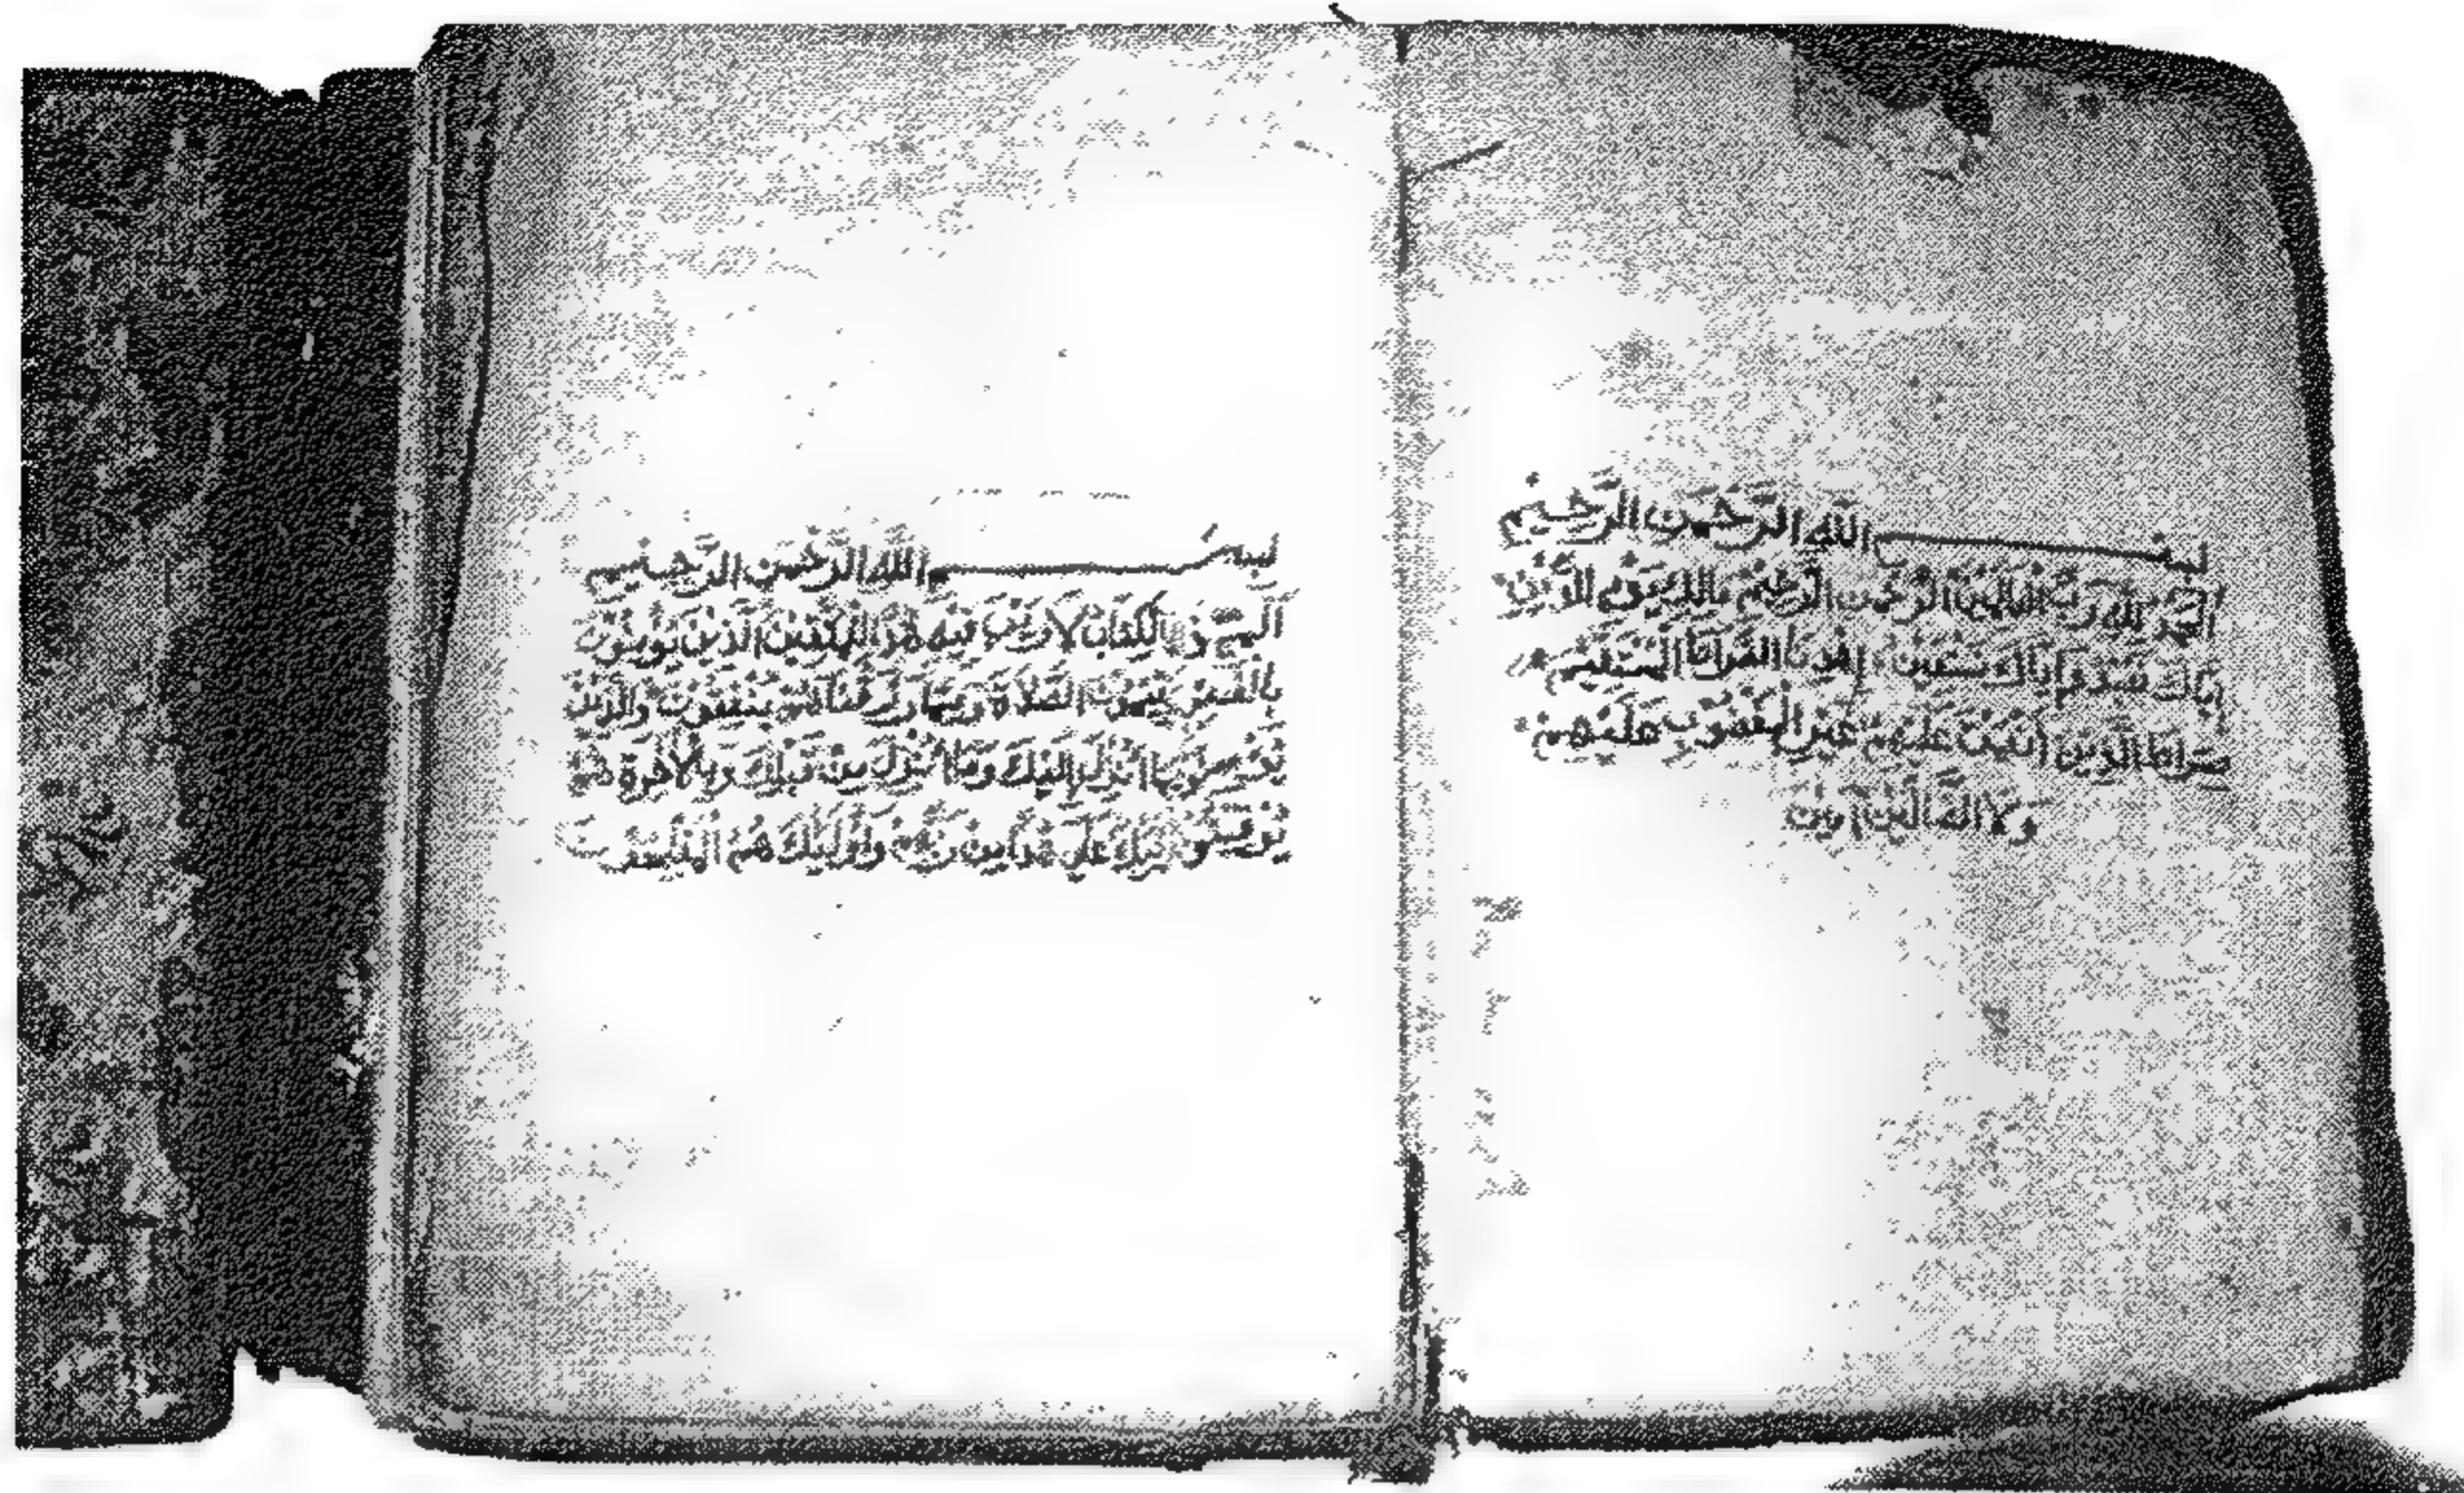 بسم الله الرحمن الرحيم
الحمد لله رب العالمين الرحمن الرحيم مالك يوم الدين
اياك نعبد واياك نستعين اهدنا الصراط المستقيم
صراط الذين انعمت عليهم غير المغضوب عليهم
ولا الضالين امين
بسم الله الرحمن الرحيم
الم ذلك الكتاب لا ريب فيه هدى للمتقين الذين يؤمنون
بالغيب ويقيمون الصلاة ومما رزقناهم ينفقون والذين
يؤمنون بما انزل اليك وما انزل من قبلك وبالاخرة هم
يوقنون اولئك على هدى من ربهم واولئك هم المفلحون